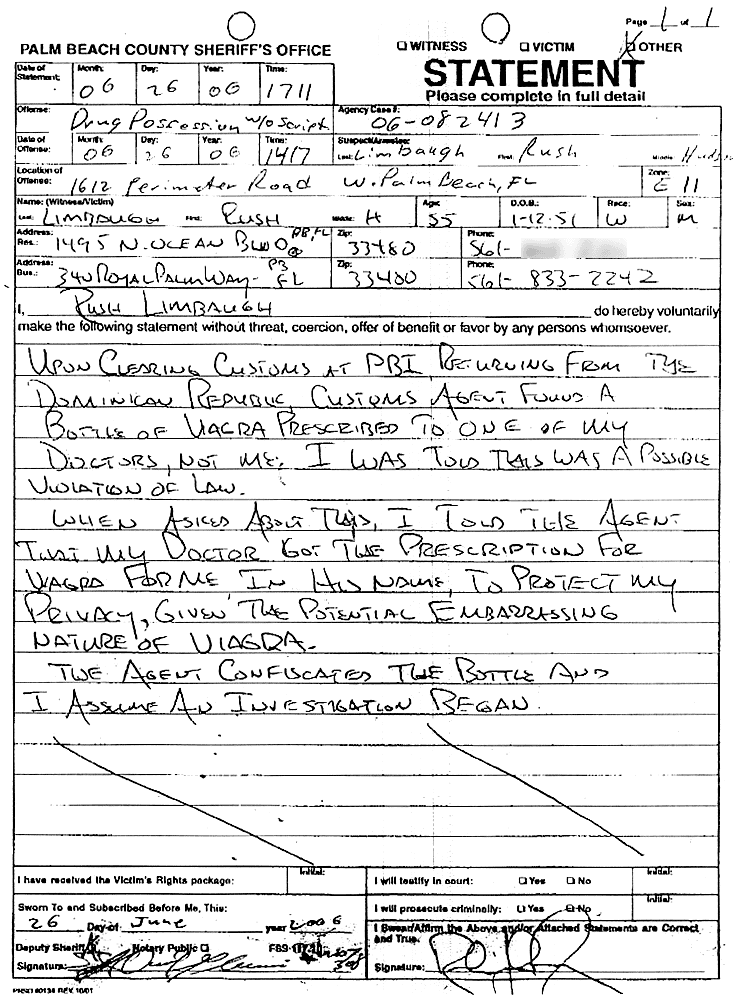 Page 1 of 1
PALM BEACH COUNTY SHERIFF'S OFFICE
WITNESS VICTIM OTHER
STATEMENT
Please complete in full detail
Date of Statement: Month: 06 Day: 26 Year: 06 Time: 1711
Offense: Drug Possession w/o Script Agency Case #: 06-082413
Date of Offense: Month: 06 Day: 26 Year: 06 Time: 1417 Suspect/Arrestee: Last: Limbaugh First: Rush Middle: Hudson
Location of Offense: 1612 Perimeter Road W. Palm Beach, FL Zone: E 11
Name: (Witness/Victim) Last: LIMBAUGH First: RUSH Middle: H Age: 55 D.O.B.: 1-12-51 Race: W Sex: M
Address: Res.: 1495 N. OCEAN BLVD PB, FL Zip: 33480 Phone: 561-
Address: Bus.: 340 ROYAL PALM WAY- PB FL Zip: 33480 Phone: 561- 833-2242
I, RUSH LIMBAUGH do hereby voluntarily
make the following statement without threat, coercion, offer of benefit or favor by any persons whomsoever.
UPON CLEARING CUSTOMS AT PBI RETURNING FROM THE
DOMINICAN REPUBLIC, CUSTOMS AGENT FOUND A
BOTTLE OF VIAGRA PRESCRIBED TO ONE OF MY
DOCTORS, NOT ME. I WAS TOLD THIS WAS A POSSIBLE
VIOLATION OF LAW.
WHEN ASKED ABOUT THIS, I TOLD THE AGENT
THAT MY DOCTOR GOT THE PRESCRIPTION FOR
VIAGRA FOR ME IN HIS NAME, TO PROTECT MY
PRIVACY, GIVEN THE POTENTIAL EMBARRASSING
NATURE OF VIAGRA.
THE AGENT CONFISCATED THE BOTTLE AND
I ASSUME AN INVESTIGATION BEGAN.
I have received the Victim's Rights package: Initial: I will testify in court: Yes No Initial:
I will prosecute criminally: Yes No Initial:
Sworn To and Subscribed Before Me, This:
26 Day of June year 2006
I Swear/Affirm the Above and/or Attached Statements are Correct and True.
Deputy Sheriff Notary Public
Signature: Signature:
PBSO #0134 REV. 10/01